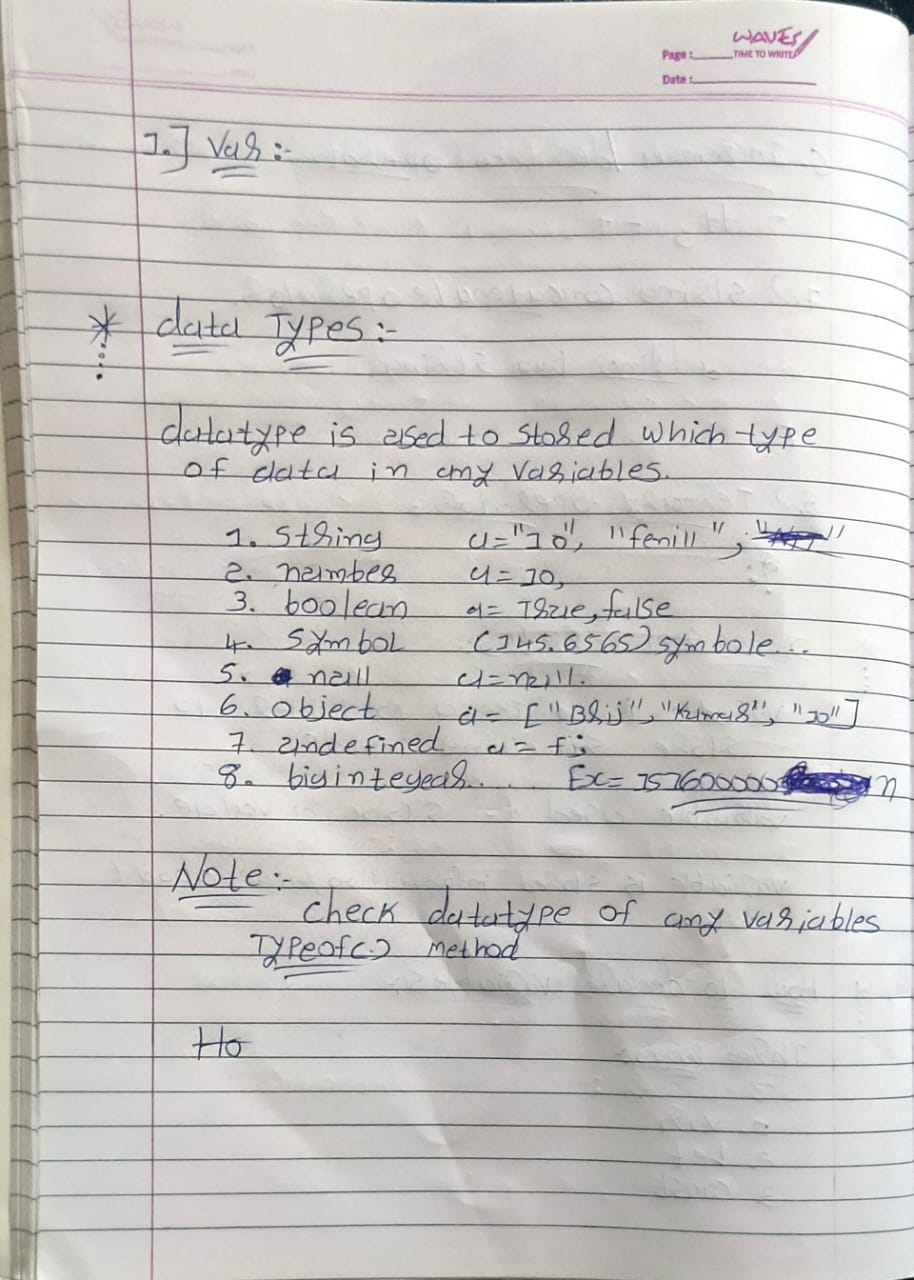 WAVES
Page : TIME TO WRITE
Date :
1.] Var :-
* data Types :-
datatype is used to stored which type
of data in any variables.
1. String a="10", "fenill", " "
2. number a=10,
3. boolean a= True, false
4. Symbol (145.6565) symbole...
5. null a=null.
6. object a= ["Brij", "Kumar", "10"]
7. undefined a= f;
8. biginteyear.... Ex= 151600000 n
Note :-
check datatype of any variables
Typeof(.) method
Ho